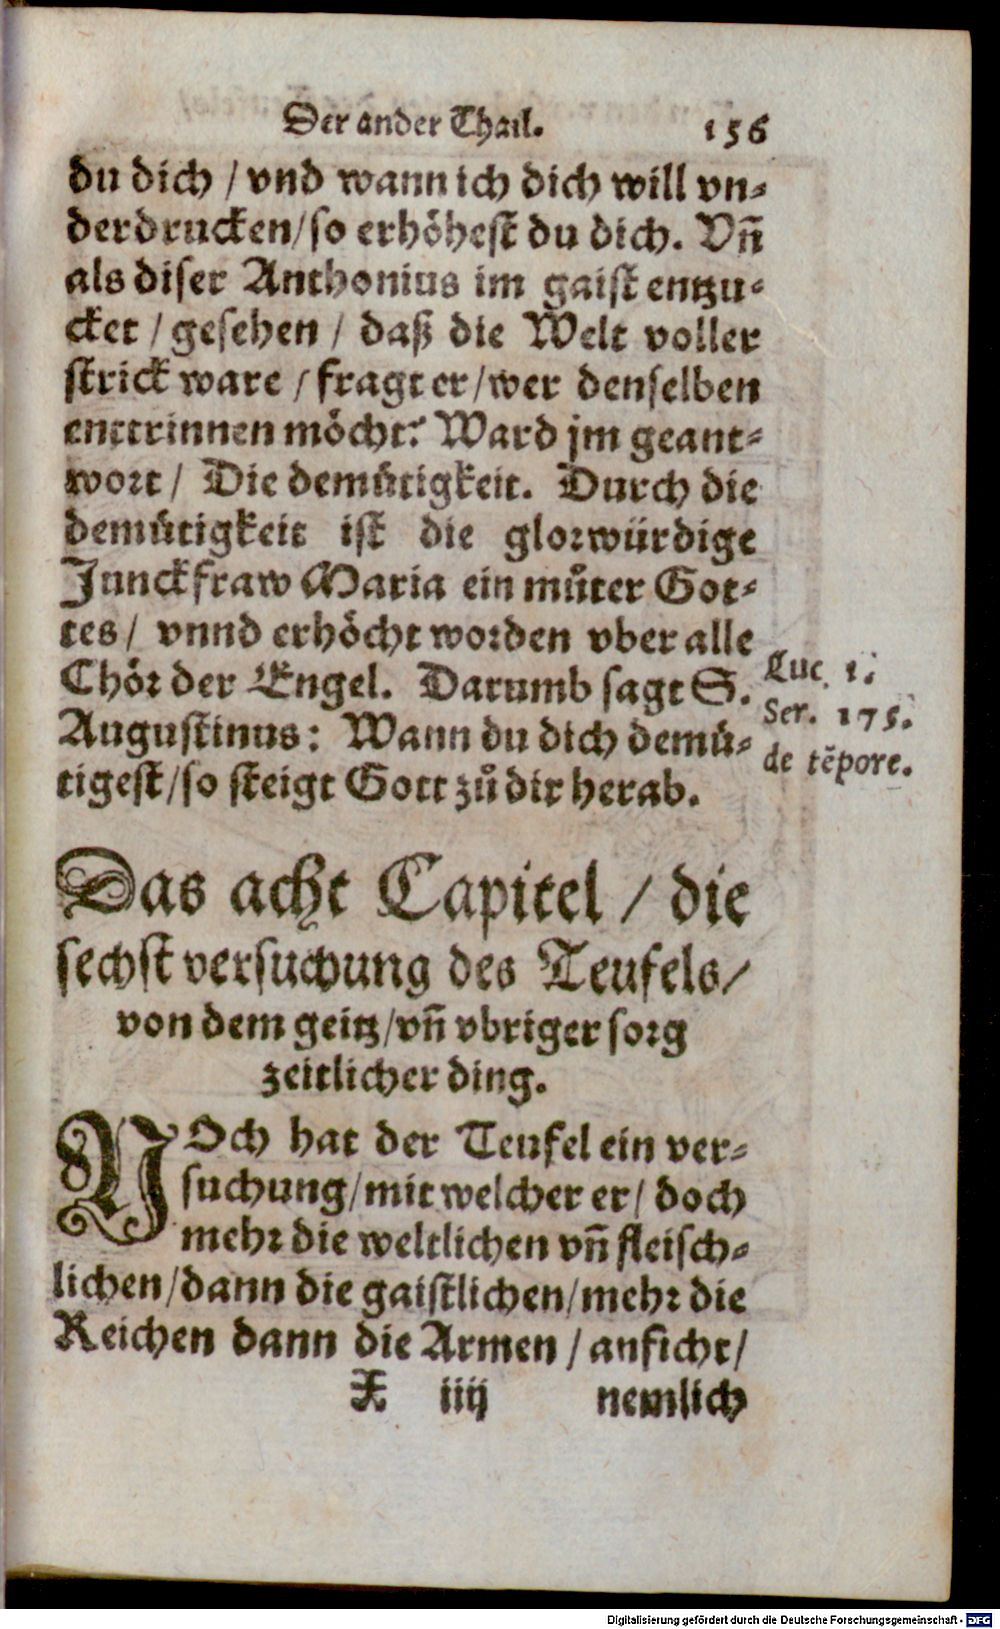 Der ander Thail. 156
du dich / vnd wann ich dich will vn-
derdrucken/so erhöhest du dich. Vñ
als diser Anthonius im gaist entzu-
cket / gesehen / daß die Welt voller
strick ware / fragt er/wer denselben
enttrinnen möcht? Ward jm geant-
wort / Die demütigkeit. Durch die
demütigkeit ist die glorwürdige
Junckfraw Maria ein můter Got-
tes / vnnd erhöcht worden vber alle
Chör der Engel. Darumb sagt S.
Augustinus: Wann du dich demü-
tigest/so steigt Gott zů dir herab.
Luc. 1.
Ser. 175.
de tẽpore.
Das acht Capitel / die
sechst versuchung des Teufels/
von dem geitz/vñ vbriger sorg
zeitlicher ding.
NOch hat der Teufel ein ver-
suchung/mit welcher er/ doch
mehr die weltlichen vñ fleisch-
lichen/dann die gaistlichen/mehr die
Reichen dann die Armen / anficht/
X iiij nemlich
Digitalisierung gefördert durch die Deutsche Forschungsgemeinschaft - DFG